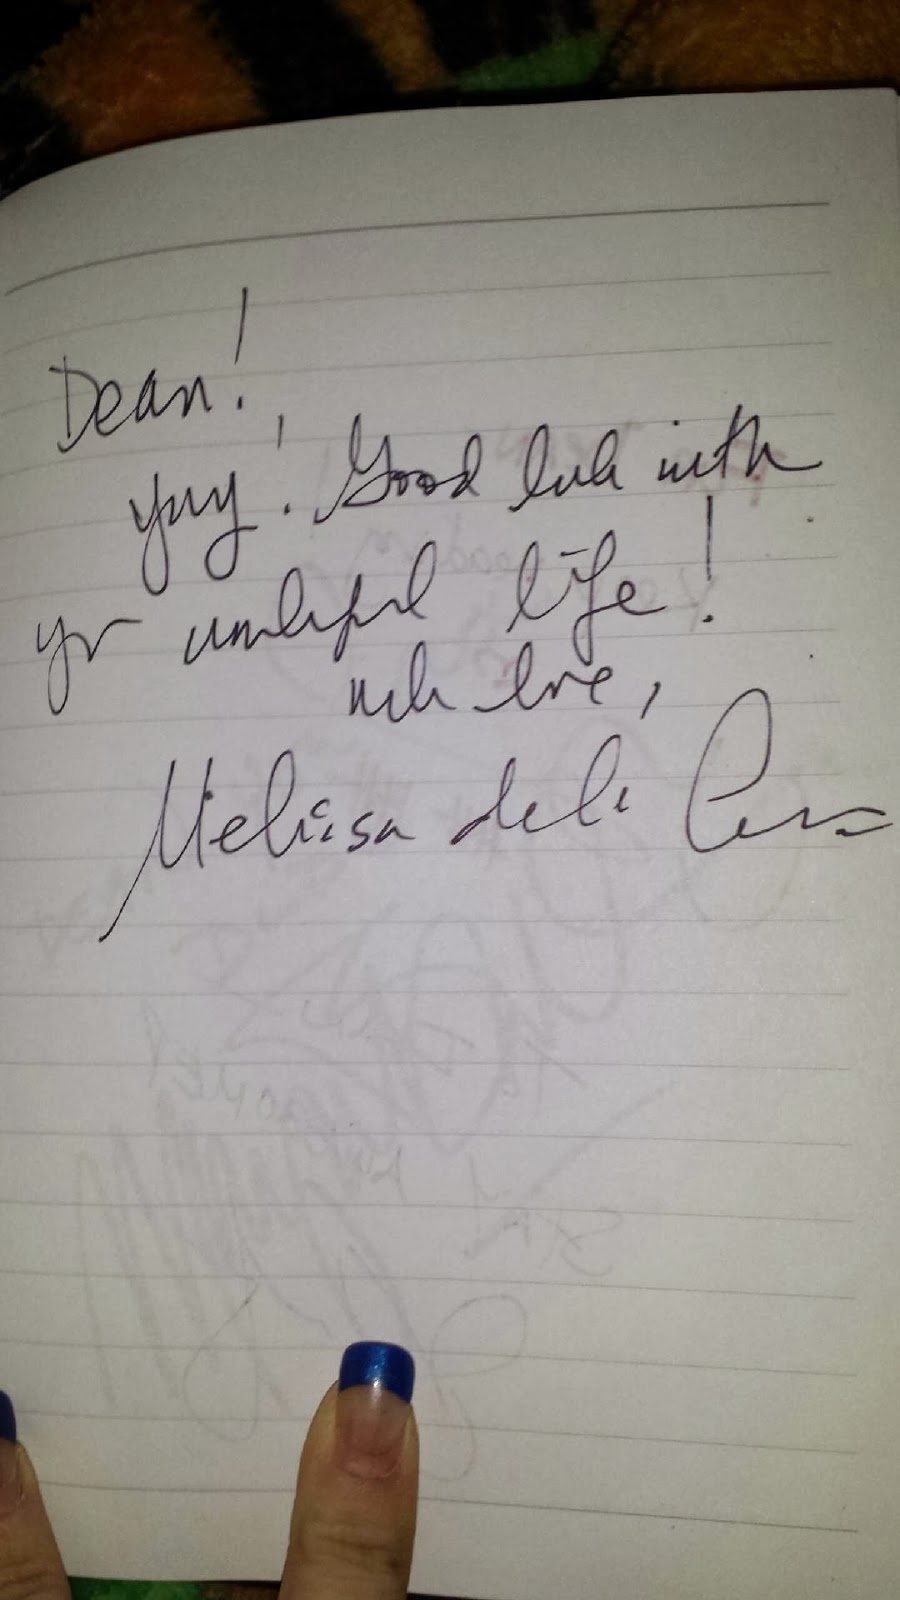 Dean!
Yay! Good luck with
yr wonderful life!
much love,
Melissa de la Cruz